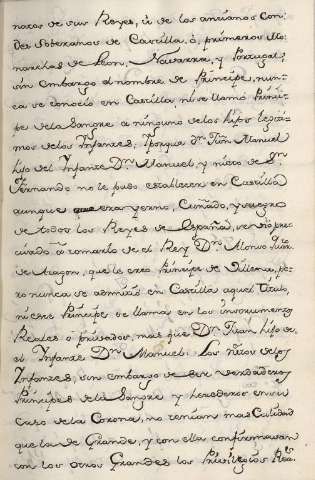 naros de sus Reyes, ú de los ancianos Con-
des Soberanos de Castilla, ó, primeros Mo-
narcas de Leon, Navarra, y Portugal,
sin embargo el nombre de Principe, nun-
ca se conocio en Castilla, ni se llamó Princi-
pe de la Sangre a ninguno de los hijos legiti-
mos de los Infantes; Porque Dn. Juan Manuel
hijo del Infante Dn. Manuel, y nieto de Sn.
Fernando no le pudo establecer en Castilla
aunque era yerno, Cuñado, y suegro
de todos los Reyes de España, se vio pre-
cisado a tomarlo de el Rey Dn. Alonso
de Aragon, que le creo Principe de Villena, pe-
ro nunca se admitio en Castilla aquel titulo,
ni ese Principe se llama en los instrumentos
Reales o privados, mas que Dn. Juan hijo de
el Infante Dn. Manuel. Los nietos de los
Infantes, sin embargo de ser verdaderos
Principes de la Sangre y herederos en su
caso de la Corona, no tenian mas Calidad
que la de Grande, y con ella confirmavan
con los otros Grandes los Privilegios Rea-